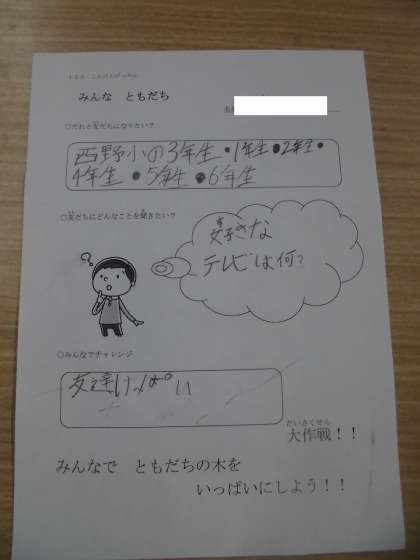 みんな ともだち
○だれと友だちになりたい?
西野小の3年生・1年生・2年生・
4年生・5年生・6年生
○友だちにどんなことを聞きたい?
好きな
テレビは何?
?
○みんなでチャレンジ
友達いっぱい
だいさくせん
大作戦!!
みんなで ともだちの木を
いっぱいにしよう!!